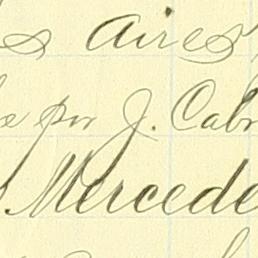 s Aires
e por J. Cabr
Mercede